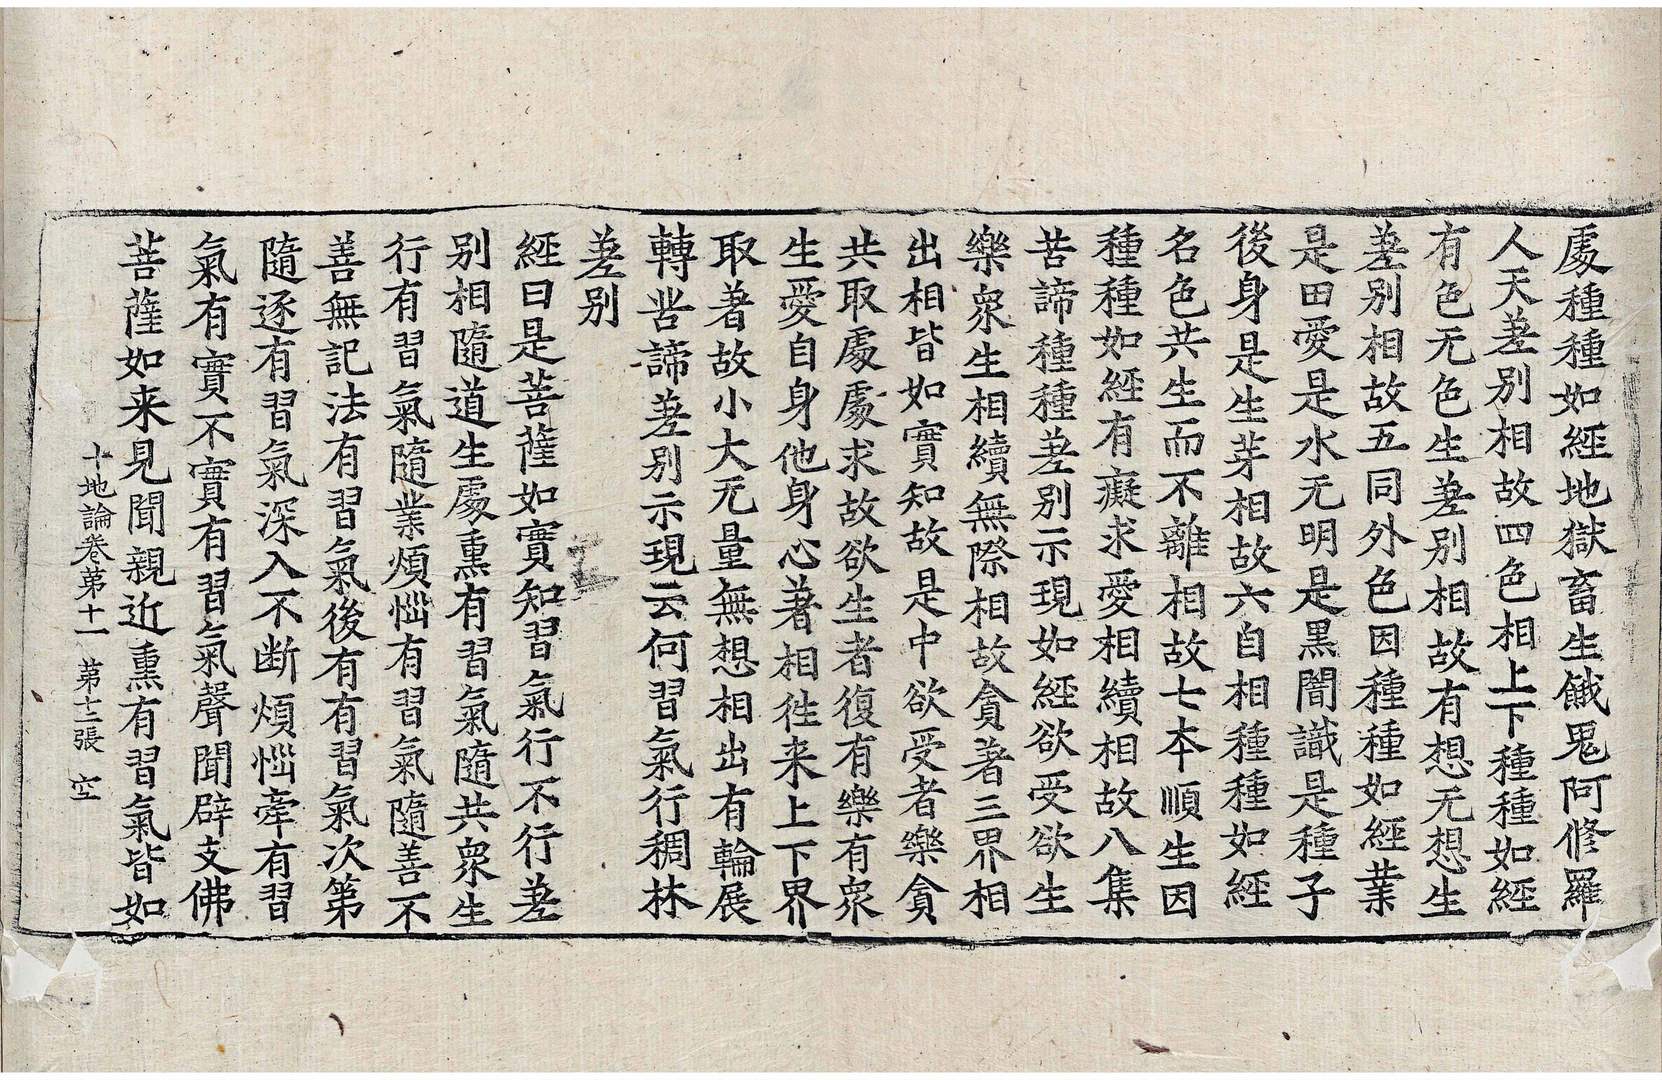 處種種如經地獄畜生餓鬼阿修羅
人天差别相故四色相上下種種如經
有色无色生差别相故有想无想生
差别相故五同外色因種種如經業
是田愛是水无明是黒闇識是種子
後身是生芽相故六自相種種如經
名色共生而不離相故七本順生因
種種如經有癡求愛相續相故八集
苦諦種種差别示現如經欲受欲生
樂衆生相續無際相故貪著三界相
出相皆如實知故是中欲受者樂貪
共取處處求故欲生者復有樂有衆
生愛自身他身心著相徃来上下界
取著故小大无量無想相出有輪展
轉苦諦差别示現云何習氣行稠林
差别
經曰是菩薩如實知習氣行不行差
别相隨道生處熏有習氣隨共衆生
行有習氣隨業煩惱有習氣隨善不
善無記法有習氣後有有習氣次第
隨逐有習氣深入不断煩惱牽有習
氣有實不實有習氣聲聞辟支佛
菩薩如来見聞親近熏有習氣皆如
十地論卷第十一 第十二張 空